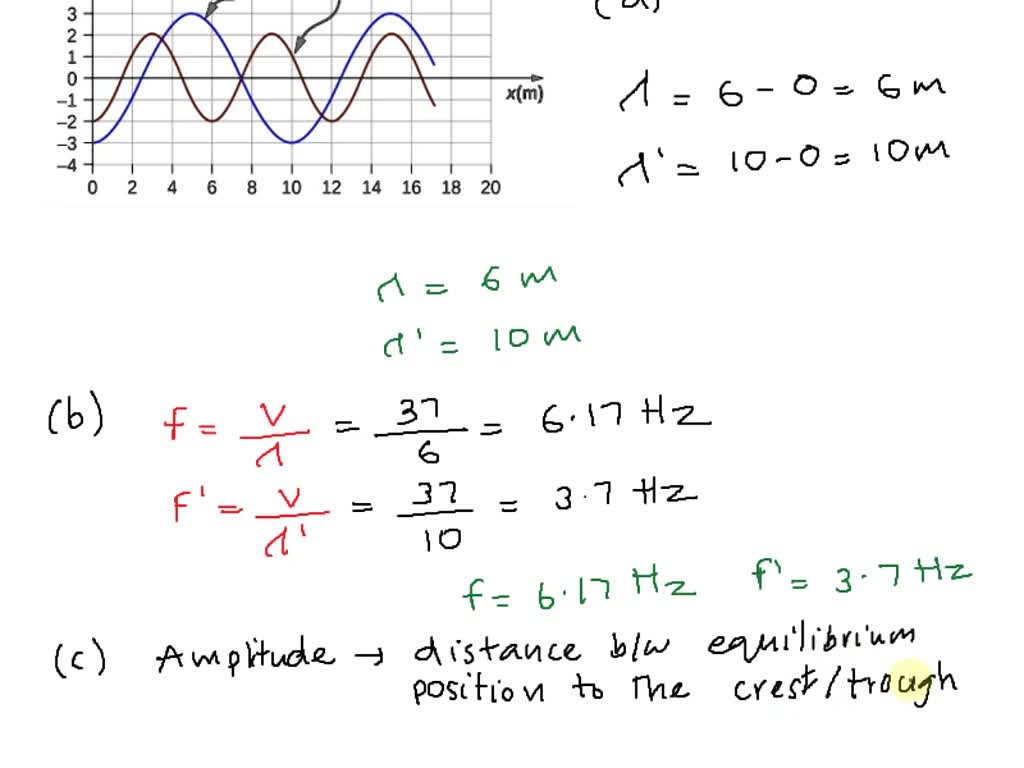 (a)
3
2
1
0
−1
−2
−3
−4
x(m)
0 2 4 6 8 10 12 14 16 18 20
λ = 6 - 0 = 6 m
λ' = 10 - 0 = 10 m
λ = 6 m
λ' = 10 m
(b) f = V/λ = 37/6 = 6.17 Hz
F' = V/λ' = 37/10 = 3.7 Hz
f = 6.17 Hz f' = 3.7 Hz
(c) Amplitude → distance b/w equilibrium
position to the crest/trough